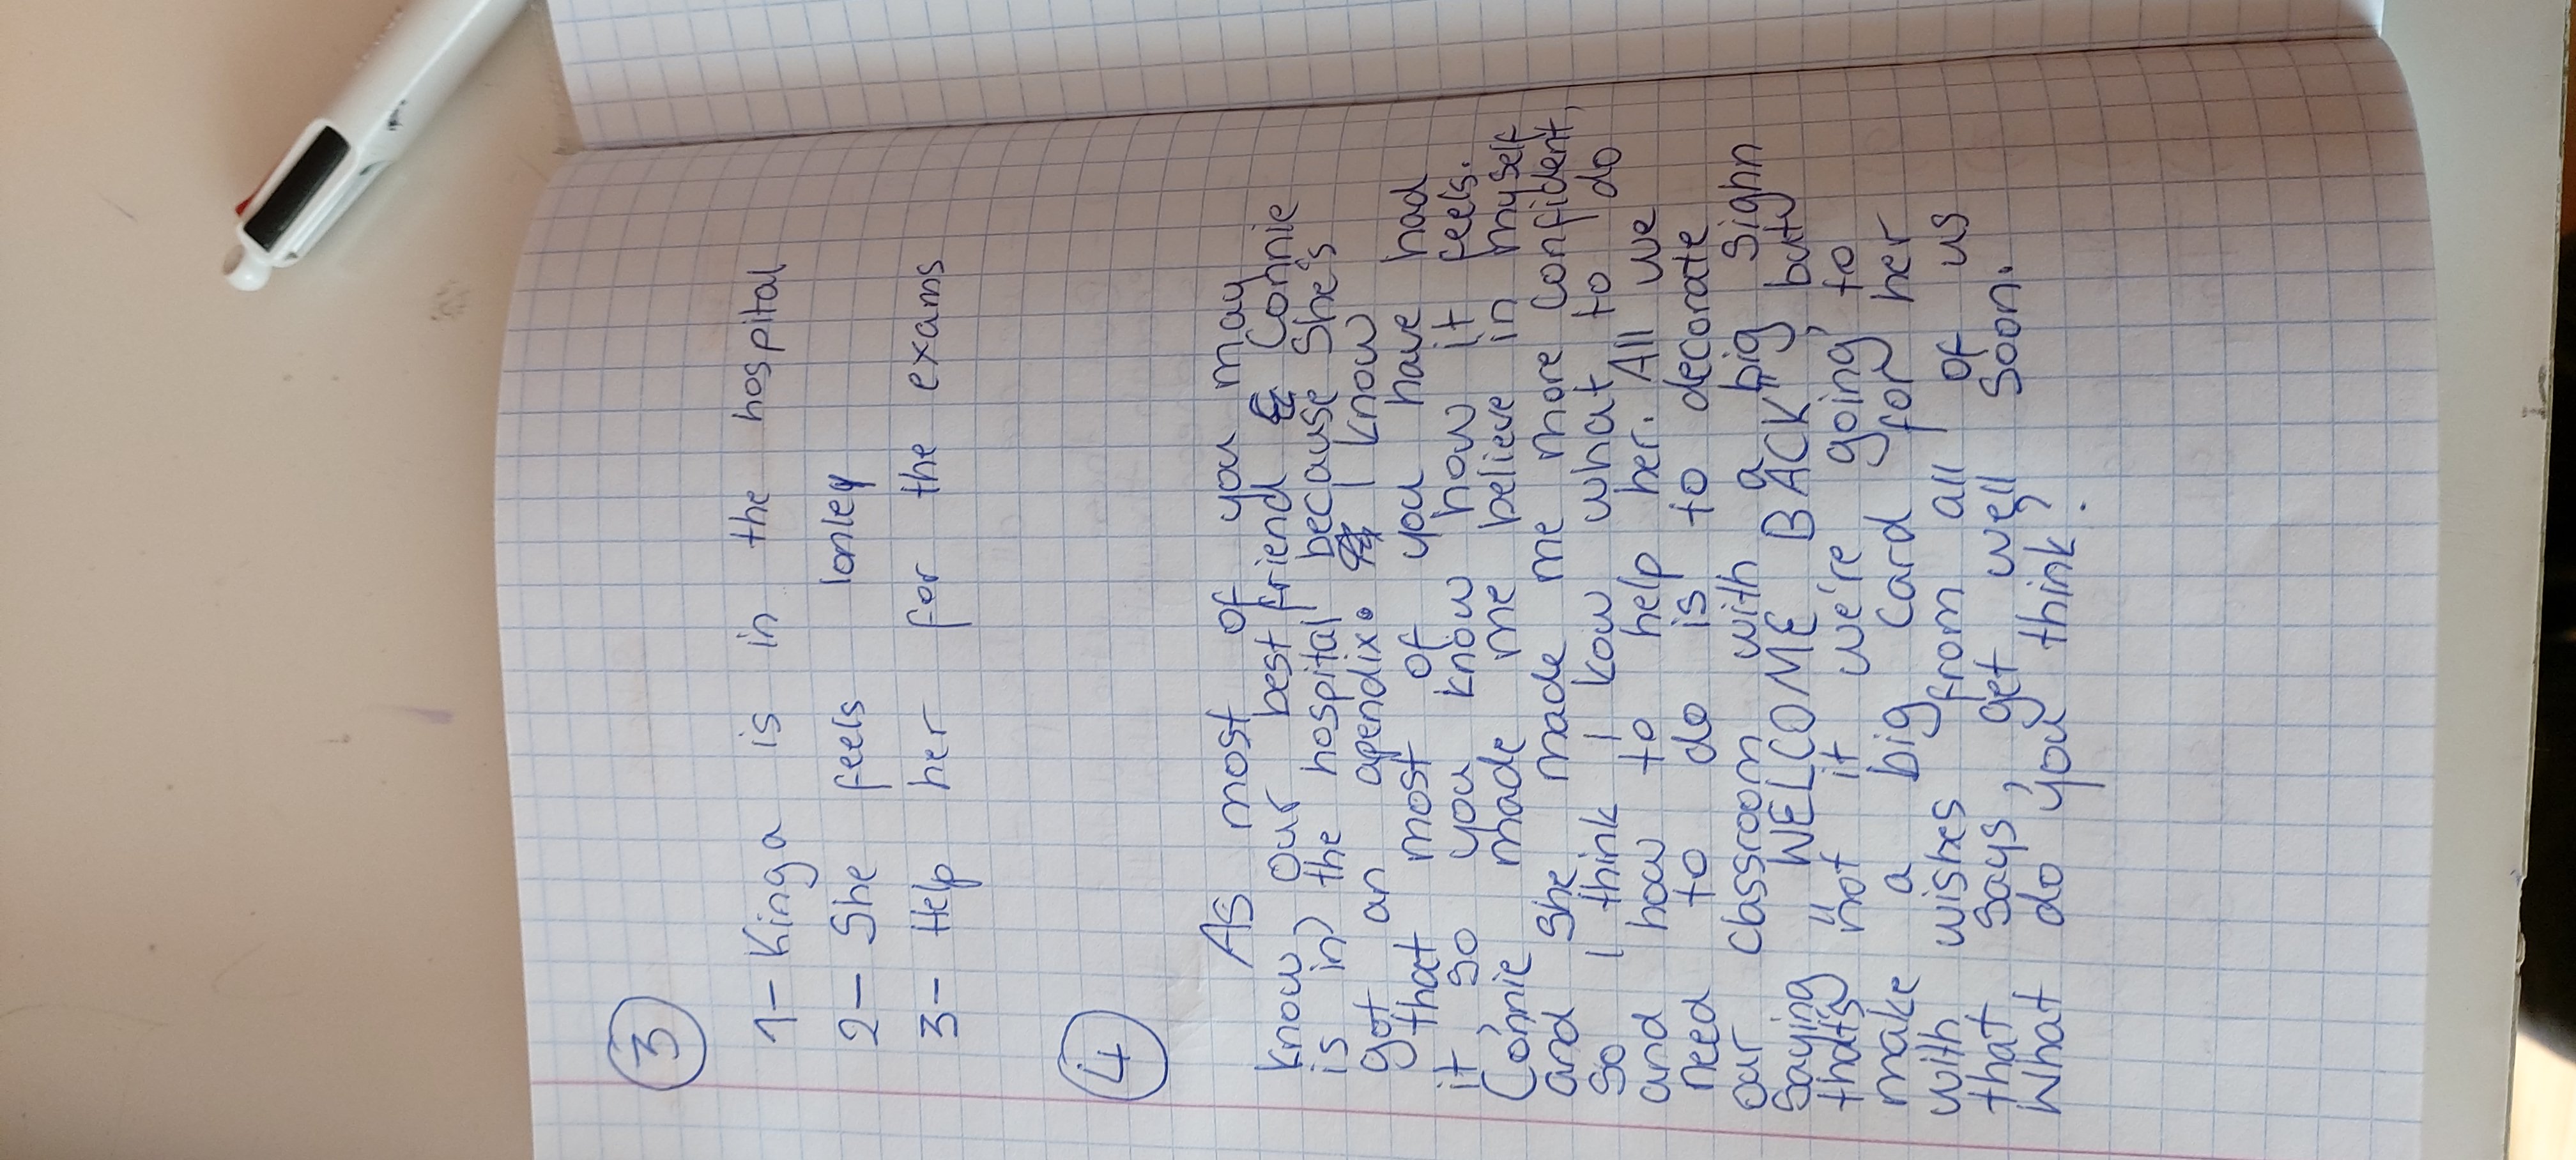 3
1- Kinga is in the hospital
2- She feels lonley
3- Help her for the exams
4
As most of you may
know our best friend Connie
is in the hospital because She's
got an apendix. I know
that most of you have had
it so you know how it feels.
Connie made me believe in myself
and She made me more confident,
So I think I kow what to do
and how to help her. All we
need to do is to decorate
our classroom with a big sighn
Saying "WELCOME BACK", but
that's not it we're going to
make a big card for her
with wishes from all of us
that says, get well soon.
What do you think?